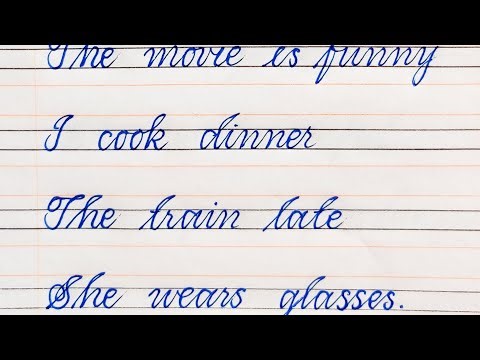 The movie is funny
I cook dinner
The train late
She wears glasses.